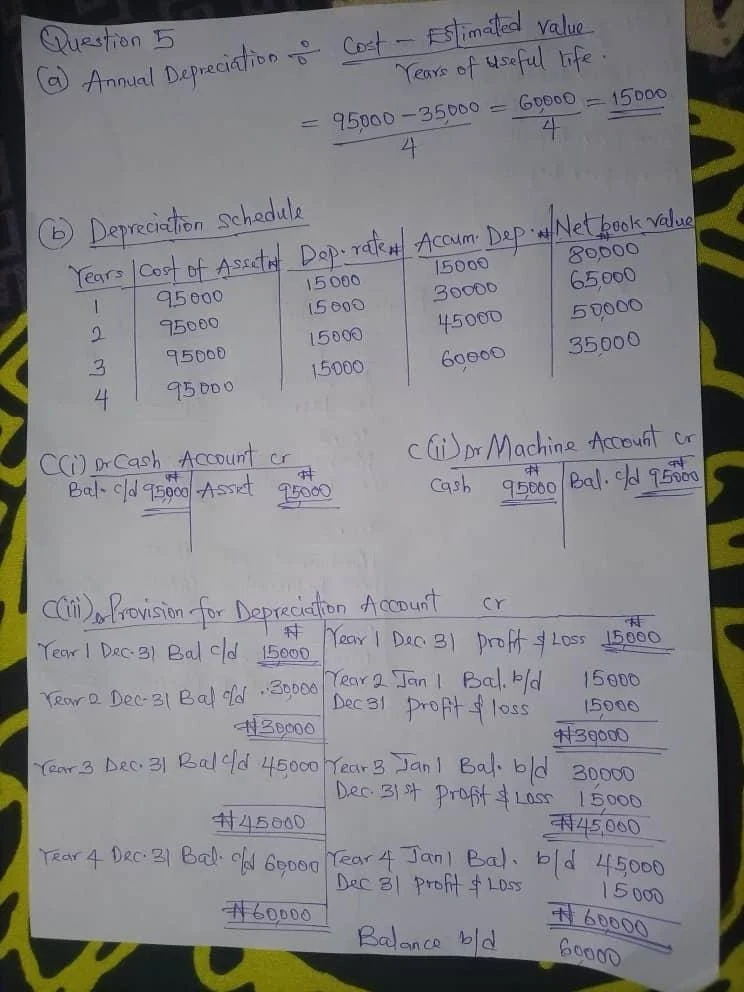 Question 5
(a) Annual Depreciation ÷ Cost - Estimated value
Years of useful life.
= 95,000 - 35,000 = 60,000 = 15000
4 4
(b) Depreciation schedule
Years Cost of Asset ₦ Dep. rate ₦ Accum. Dep. ₦ Net book value ₦
1 95000 15000 15000 80,000
2 95000 15000 30000 65,000
3 95000 15000 45000 50000
4 95000 15000 60,000 35,000
C(i) Dr Cash Account cr
₦ ₦
Bal. c/d 95,000 Asset 95000
C(ii) Dr Machine Account cr
₦ ₦
Cash 95000 Bal. c/d 95000
C(iii) Dr Provision for Depreciation Account cr
₦ ₦
Year 1 Dec. 31 Bal c/d 15000 Year 1 Dec. 31 profit & Loss 15000
Year 2 Dec. 31 Bal c/d 30,000 Year 2 Jan 1 Bal. b/d 15000
Dec 31 profit & loss 15000
₦30,000 ₦30,000
Year 3 Dec. 31 Bal c/d 45,000 Year 3 Jan 1 Bal. b/d 30000
Dec. 31st profit & Loss 15000
₦45000 ₦45,000
Year 4 Dec. 31 Bal. c/d 60000 Year 4 Jan 1 Bal. b/d 45,000
Dec 31 profit & Loss 15000
₦60,000 ₦60000
Balance b/d 60000